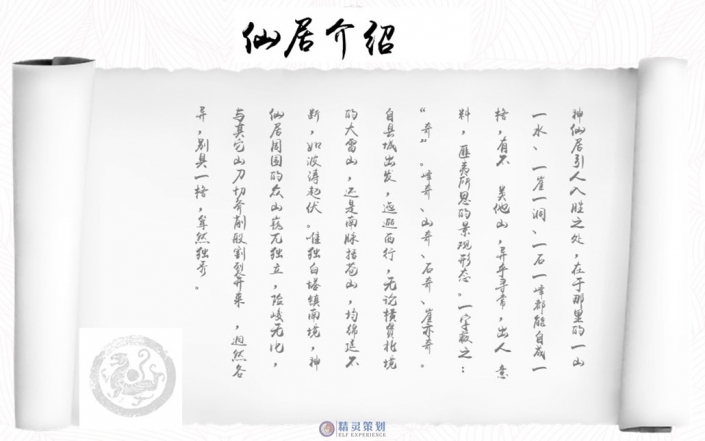 仙居介绍
神仙居引人入胜之处，在于那里的一山
一水、一崖一洞、一石一峰都能自成一
格，有不 类他山，异乎寻常，出人 意
料，匪夷所思的景观形态。一字蔽之：
“奇”。峰奇、山奇、石奇、崖亦奇。
自县城出发，迤逦西行，无论横贯北境
的大雷山，还是南脉括苍山，均绵延不
断，如波涛起伏。惟独白塔镇南境，神
仙居周围的众山巍兀独立，险峻无比，
与其它山刀切斧削般割裂开来，迥然各
异，别具一格，卓然独秀。
精灵策划
ELF EXPERIENCE